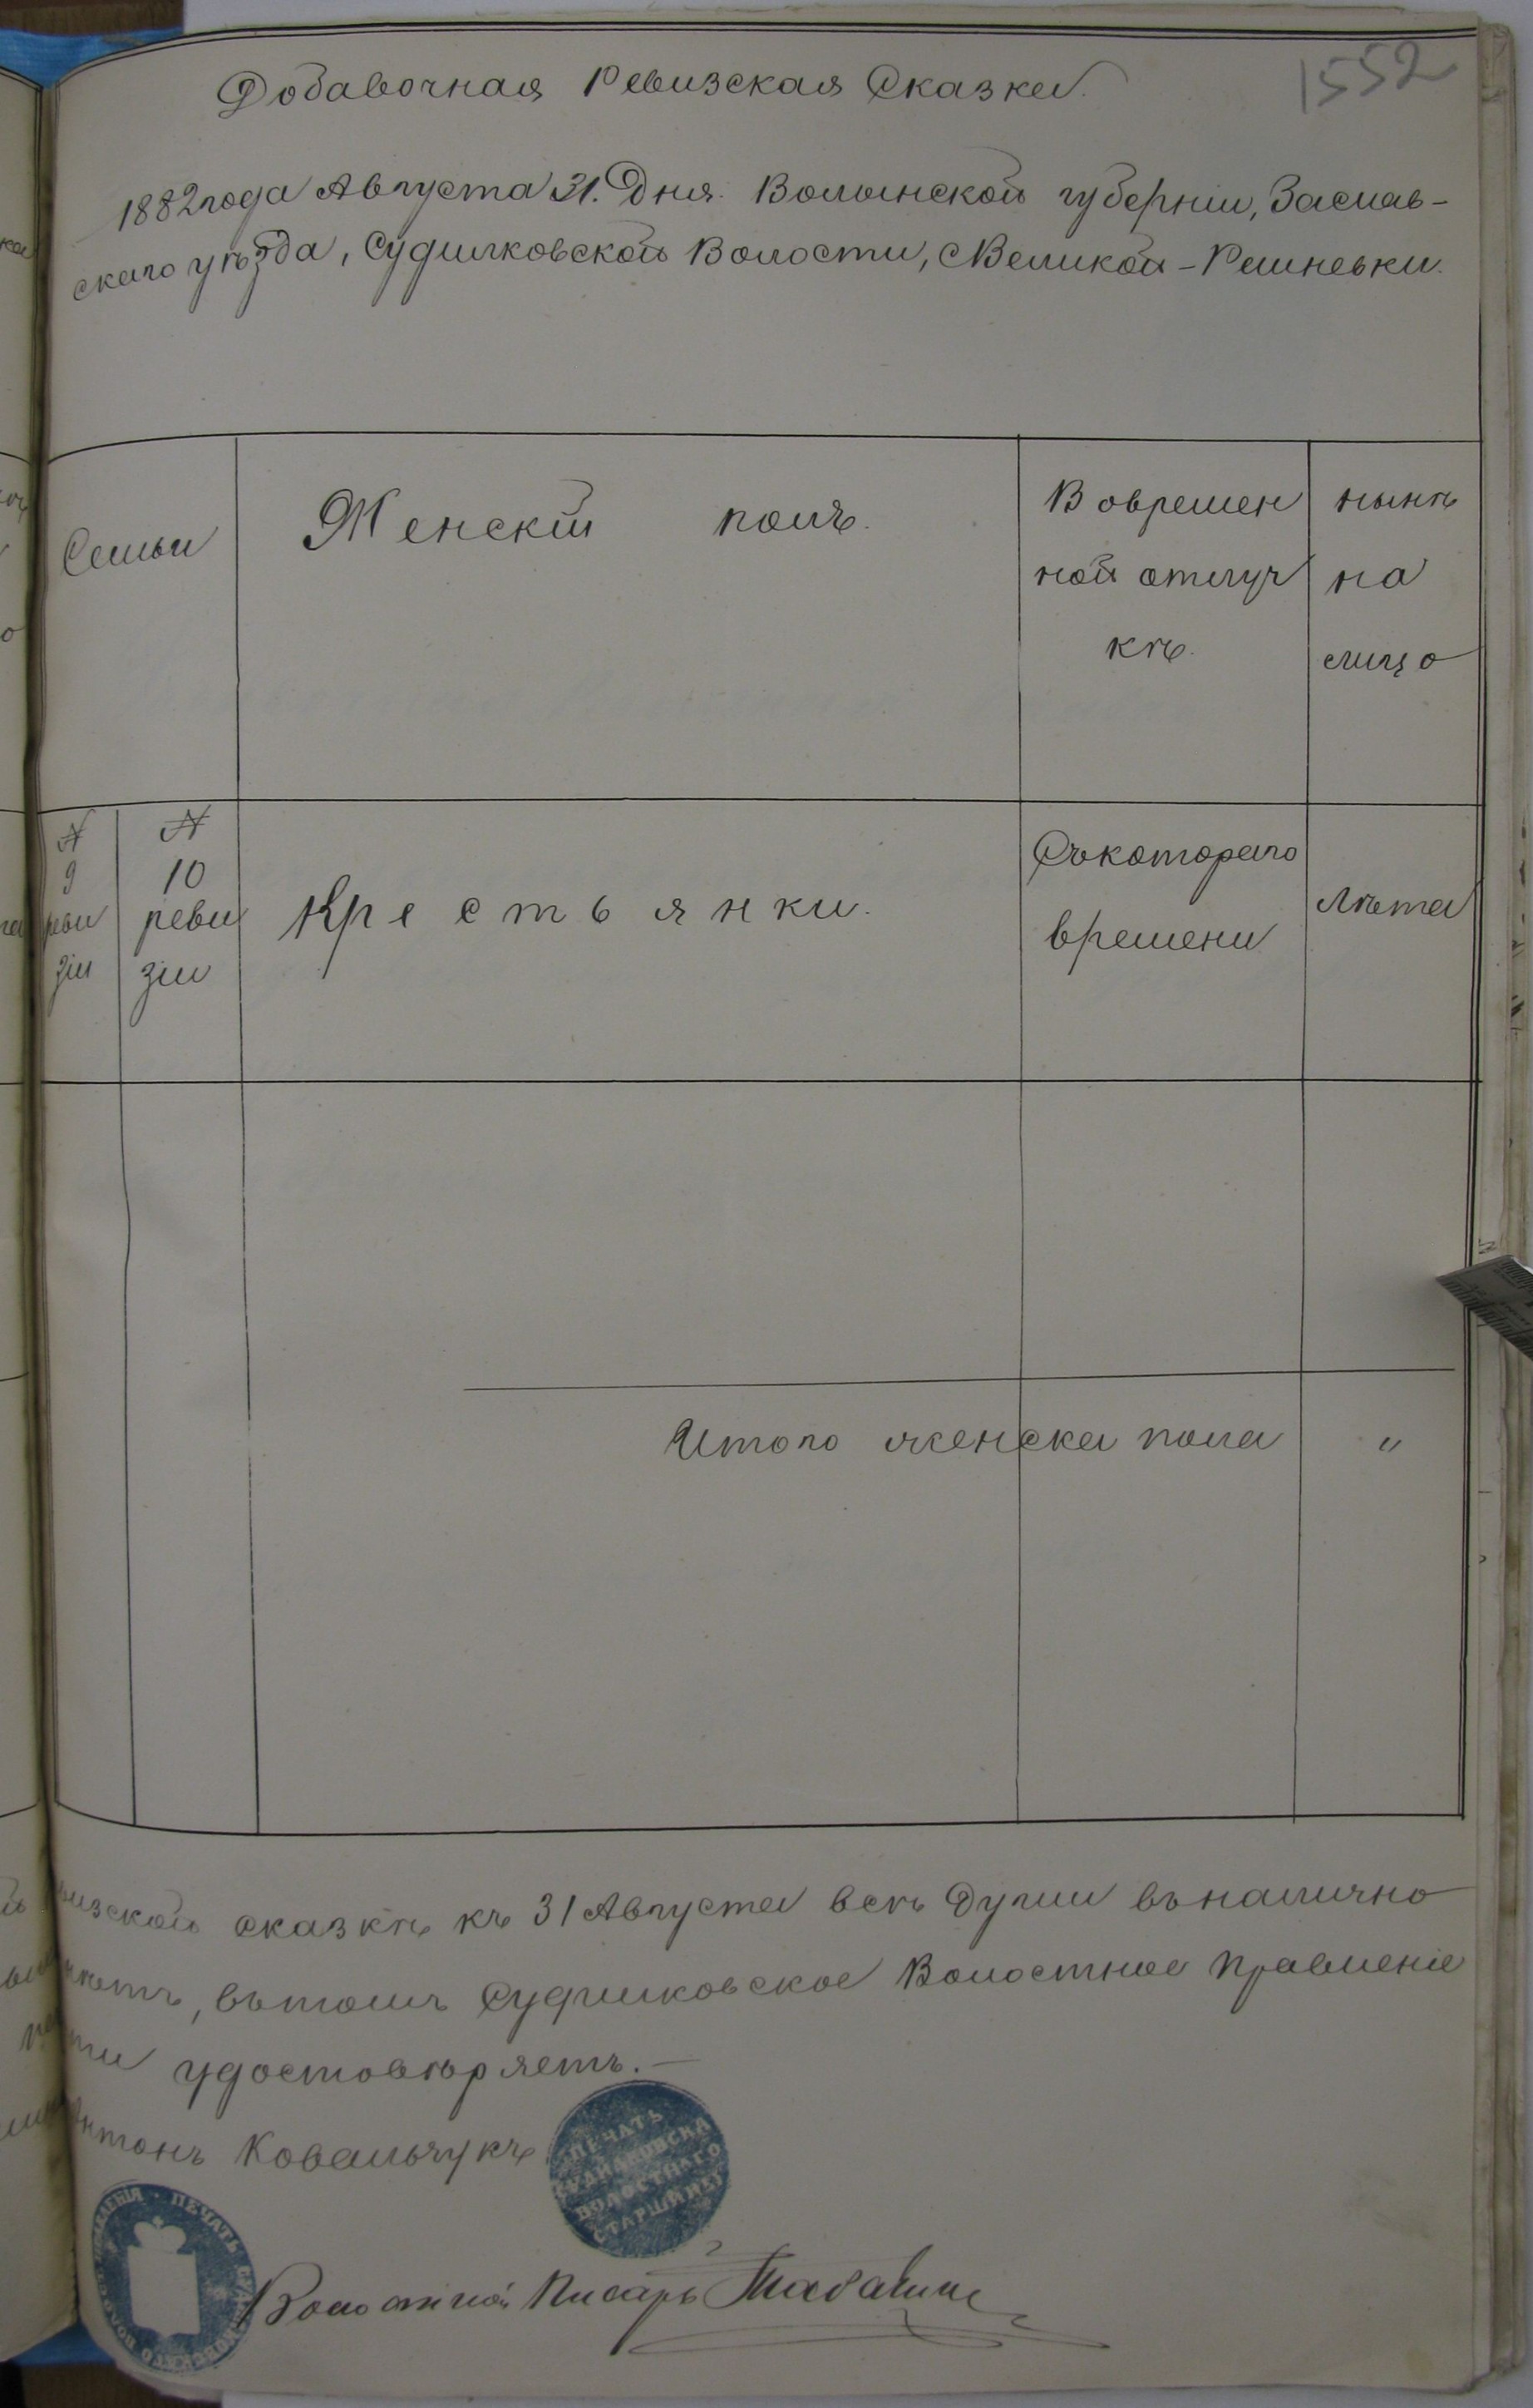 1552
Добавочная Ревизская Сказка.
1882 года Августа 31. Дня. Волынской губерніи, Заслав-
скаго уѣзда, Судилковской Волости, с Великой-Решневки.
Семьи
Женскій полъ.
Во времен
ной отлуч
кѣ.
нынѣ
на
лицо
№
9
реви
зіи
№
10
реви
зіи
Крестьянки.
Съ котораго
времени
Лѣта
Итого женска пола "
визской сказкѣ къ 31 Августа всѣ Души въ налично
въ томъ Судилковское Волостное Правленіе
удостовѣряетъ.—
Антонъ Ковальчукъ
ПЕЧАТЬ
СУДИЛКОВСКА
ВОЛОСТНАГО
СТАРШИНЫ
ПЕЧАТЬ
Волостной Писарь